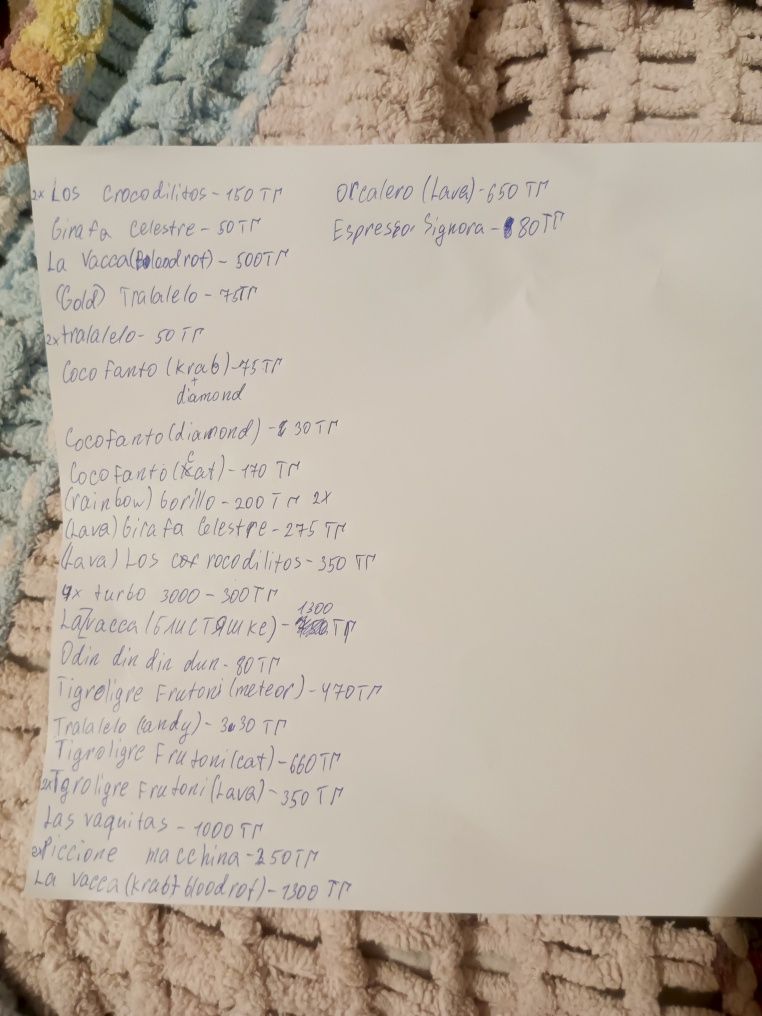 2x Los crocodilitos - 150 тг
Girafa Celestre - 50 тг
La Vacca (Bloodrot) - 500 тг
(Gold) Tralalelo - 75 тг
2x tralalelo - 50 тг
Cocofanto (krab) - 75 тг
+
diamond
Cocofanto (diamond) - 30 тг
Cocofanto (cat) - 170 тг
(rainbow) Gorillo - 200 тг 2x
(Lava) Girafa Celestre - 275 тг
(Lava) Los crocodilitos - 350 тг
4x turbo 3000 - 300 тг
La vacca (БЛИСТЯШКЕ) - 1300 тг
Odin din din dun - 80 тг
Tigroligre Frutoni (meteor) - 470 тг
Tralalelo (candy) - 330 тг
Tigroligre Frutoni (cat) - 660 тг
2x Tgroligre Frutoni (Lava) - 350 тг
Las vaquitas - 1000 тг
2x Piccione macchina - 250 тг
La vacca (krab + bloodrot) - 1300 тг
Orcalero (Lava) - 650 тг
Espresso Signora - 80 тг